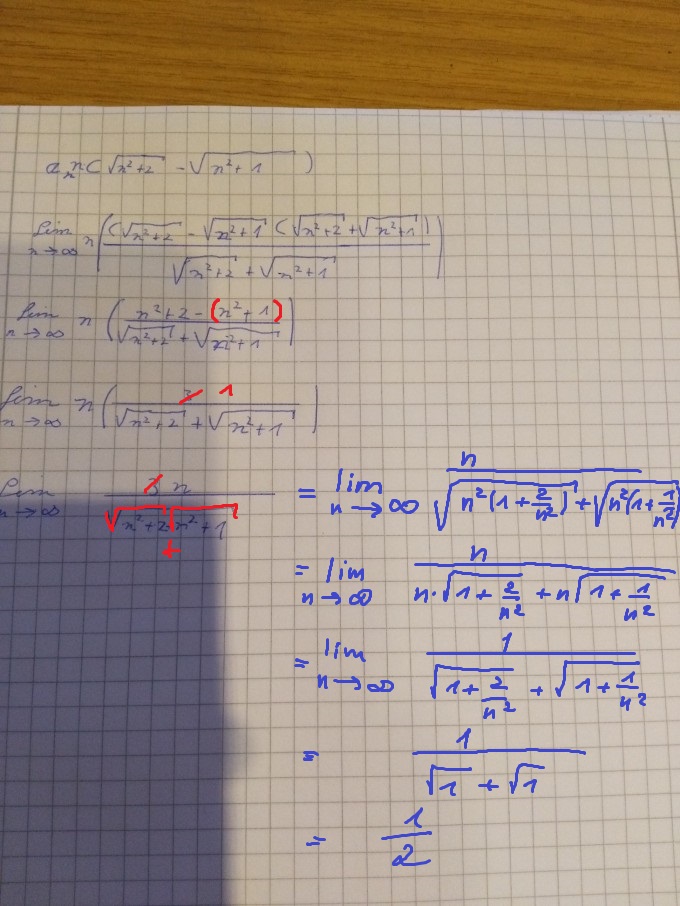 aₙ n(√(n²+2) - √(n²+1))
lim n→∞ n((√(n²+2) - √(n²+1) (√(n²+2) + √(n²+1))/(√(n²+2) + √(n²+1)))
lim n→∞ n((n²+2-(n²+1))/(√(n²+2) + √(n²+1)))
lim n→∞ n(3 1/(√(n²+2) + √(n²+1)))
lim n→∞ 3n/(√(n²+2) + √(n²+1))
= lim n→∞ n/(√(n²(1+2/n²)) + √(n²(1+1/n²)))
= lim n→∞ n/(n·√(1+2/n²) + n√(1+1/n²))
= lim n→∞ 1/(√(1+2/n²) + √(1+1/n²))
= 1/(√1 + √1)
= 1/2